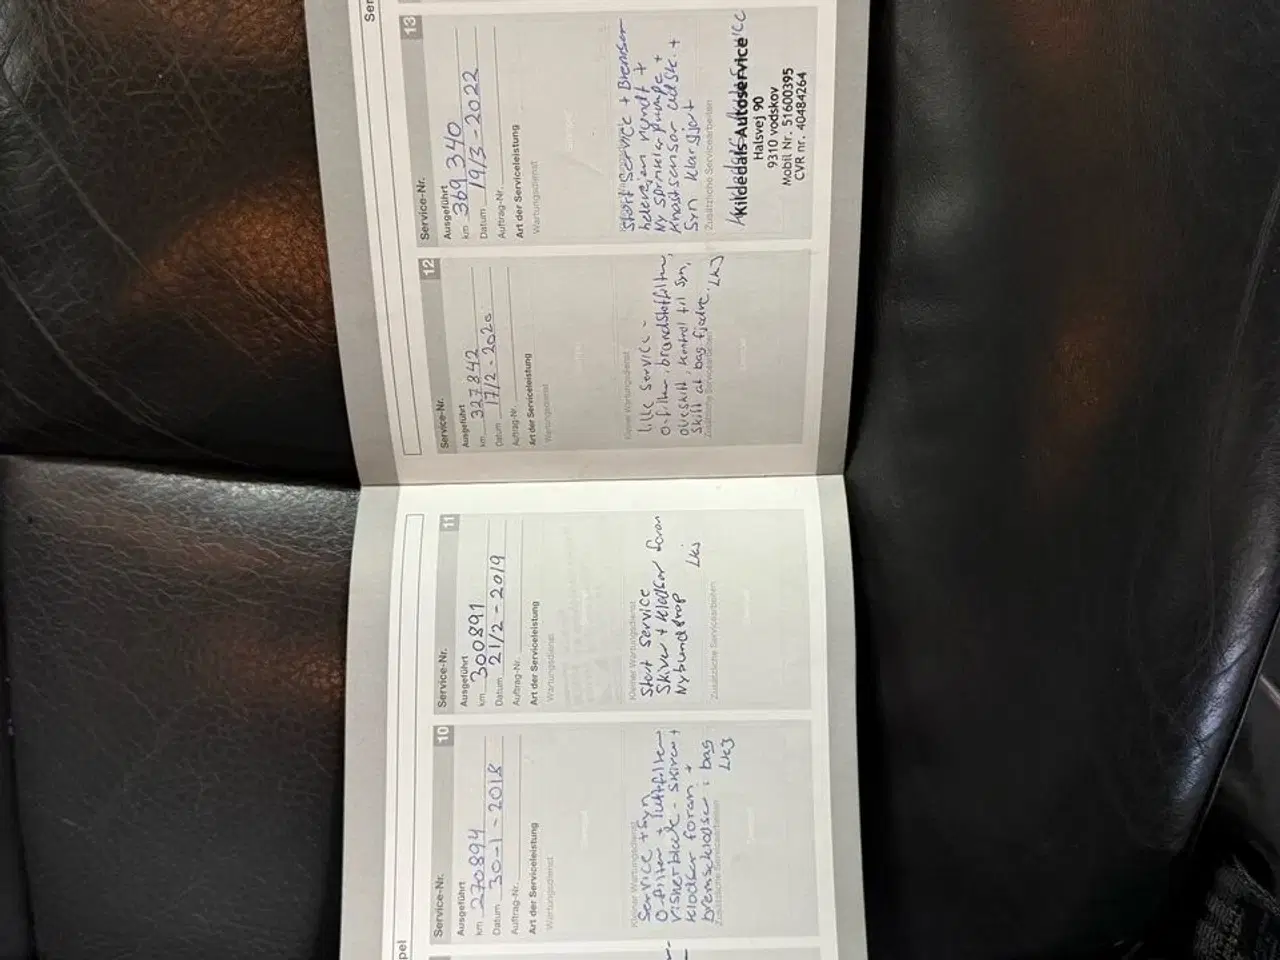 pel
Service-Nr. 10
Ausgeführt
km 270894
Datum 30-1-2018
Auftrag-Nr.
Art der Serviceleistung
Wartungsdienst
Kleiner Wartungsdienst
Service + Syn
O-filter + luftfilter
visker blade - skiver +
klodser foran +
bremseklodser i bag
Zusätzliche Servicearbeiten
LKJ
Service-Nr. 11
Ausgeführt
km 300891
Datum 21/2-2019
Auftrag-Nr.
Art der Serviceleistung
Wartungsdienst
Kleiner Wartungsdienst
Stort Service
Skiver + klodser foran
Ny bundprop
LKJ
Zusätzliche Servicearbeiten
Service-Nr. 12
Ausgeführt
km 327842
Datum 17/2-2020
Auftrag-Nr.
Art der Serviceleistung
Wartungsdienst
Kleiner Wartungsdienst
lille Service -
O-filter, brændstoffilter,
olieskift, kontrol til syn,
Skift af bag fjedre. LKJ
Zusätzliche Servicearbeiten
Ser
Service-Nr. 13
Ausgeführt
km 369 340
Datum 19/3-2022
Auftrag-Nr.
Art der Serviceleistung
Wartungsdienst
Stort Service + Bremser
hele vejen rundt +
Ny sprinkler pumpe +
Knastsensor udsk. +
Syn klargjort
Zusätzliche Servicearbeiten
Kildedals Autoservice
Halsvej 90
9310 vodskov
Mobil Nr. 51600395
CVR nr. 40484264